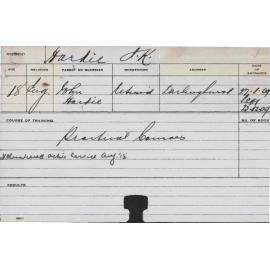 STUDENT Hardie J.K.
AGE RELIGION PARENT OR GUARDIAN OCCUPATION ADDRESS DATE OF ENTRANCE
18 Eng. John Hardie Retired Darlinghurst
COURSE OF TRAINING. NO. OF BOOK
Practical Courses
Active Service Aug '15
RESULTS